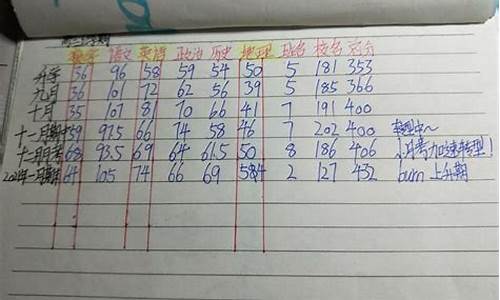 学期
数学 语文 英语 政治 历史 地理 班名 校名 总分
升学 36 96 58 59 54 50 5 181 353
九月 36 101 72 62 56 39 5 185 366
十月 35 107 81 70 66 41 7 191 400
十一月期中 59 93.5 66 74 58 46 7 202 400 转型中~
月考 68 93.5 69 64 61.5 50 8 186 406 加速转型!
2021年一月期末 64 105 74 66 69 54 2 127 432 上升期